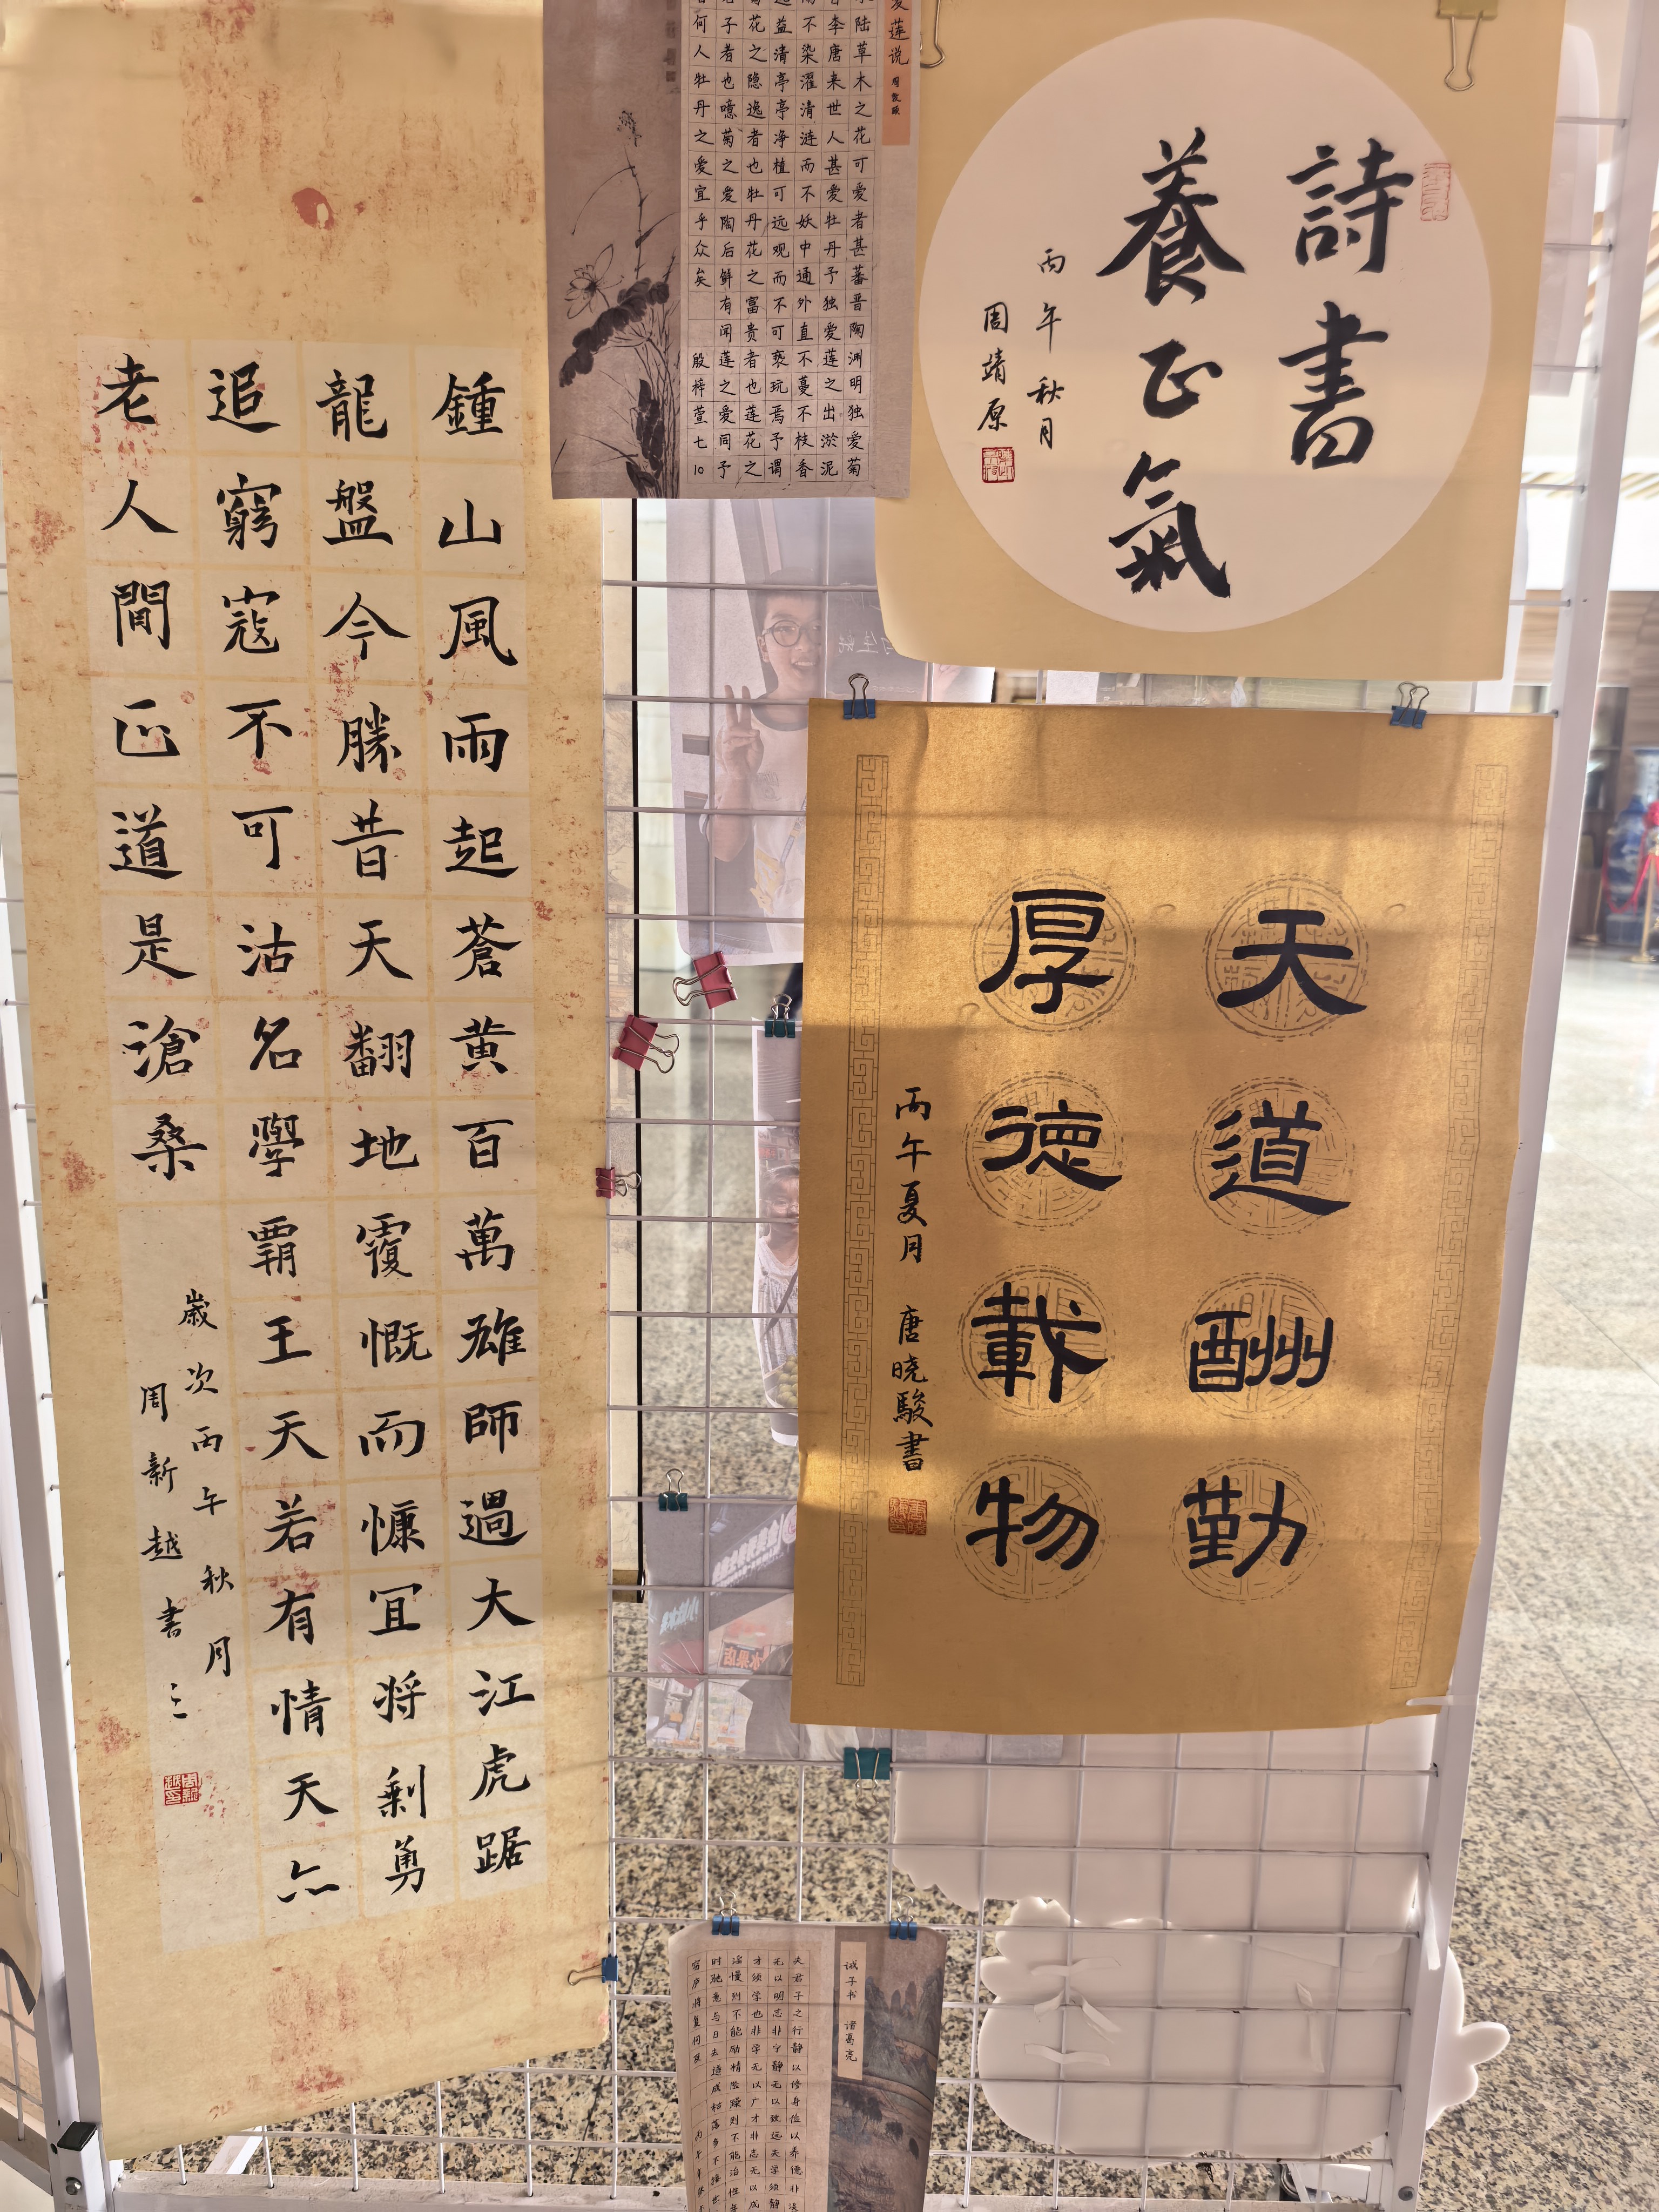 鍾山風雨起蒼黄百萬雄師過大江虎踞
龍盤今勝昔天翻地覆慨而慷宜将剩勇
追窮寇不可沽名學霸王天若有情天亦
老人間正道是滄桑
歲次丙午秋月
周新越書
爱莲说 周敦颐
陆草木之花可爱者甚蕃晋陶渊明独爱菊
李唐来世人甚爱牡丹予独爱莲之出淤泥
不染濯清涟而不妖中通外直不蔓不枝香
益清亭亭净植可远观而不可亵玩焉予谓
花之隐逸者也牡丹花之富贵者也莲花之
子者也噫菊之爱陶后鲜有闻莲之爱同予
何人牡丹之爱宜乎众矣 殷梓萱七10
詩書
養正氣
丙午秋月
周靖原
天道酬勤
厚德載物
丙午夏月 唐晓駿書
诫子书 诸葛亮
夫君子之行静以修身俭以养德非淡
无以明志非宁静无以致远夫学须静
才须学也非学无以广才非志无以成
淫慢则不能励精险躁则不能治性年
时驰意与日去遂成枯落多不接世
穷庐将复何及